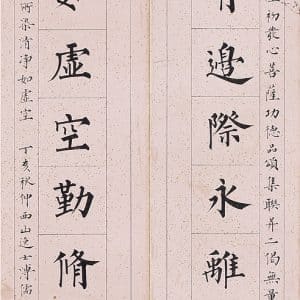 初發心菩薩功德品頌集聯并二偈無量
邊際永離
虛空勤脩
所染清净如虛空 丁亥秋仲西山逸士溥儒